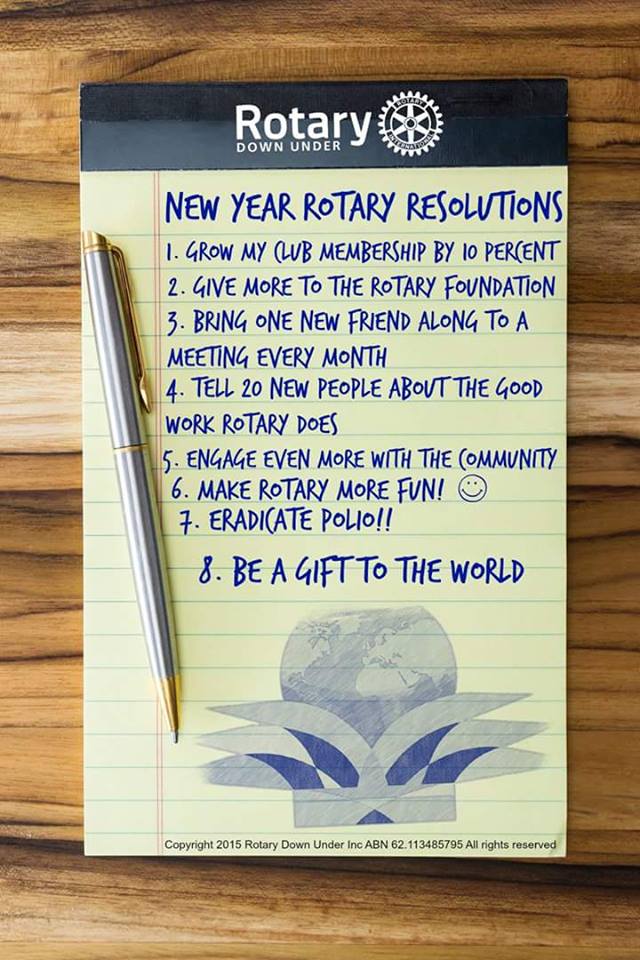 Rotary
DOWN UNDER
ROTARY
INTERNATIONAL
NEW YEAR ROTARY RESOLUTIONS
1. GROW MY CLUB MEMBERSHIP BY 10 PERCENT
2. GIVE MORE TO THE ROTARY FOUNDATION
3. BRING ONE NEW FRIEND ALONG TO A
MEETING EVERY MONTH
4. TELL 20 NEW PEOPLE ABOUT THE GOOD
WORK ROTARY DOES
5. ENGAGE EVEN MORE WITH THE COMMUNITY
6. MAKE ROTARY MORE FUN! ☺
7. ERADICATE POLIO!!
8. BE A GIFT TO THE WORLD
Copyright 2015 Rotary Down Under Inc ABN 62.113485795 All rights reserved